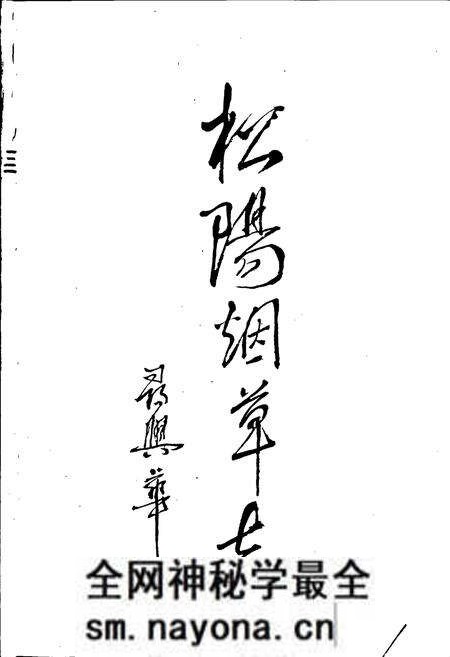 松陽烟草
尋興華
全网神秘学最全
sm.nayona.cn